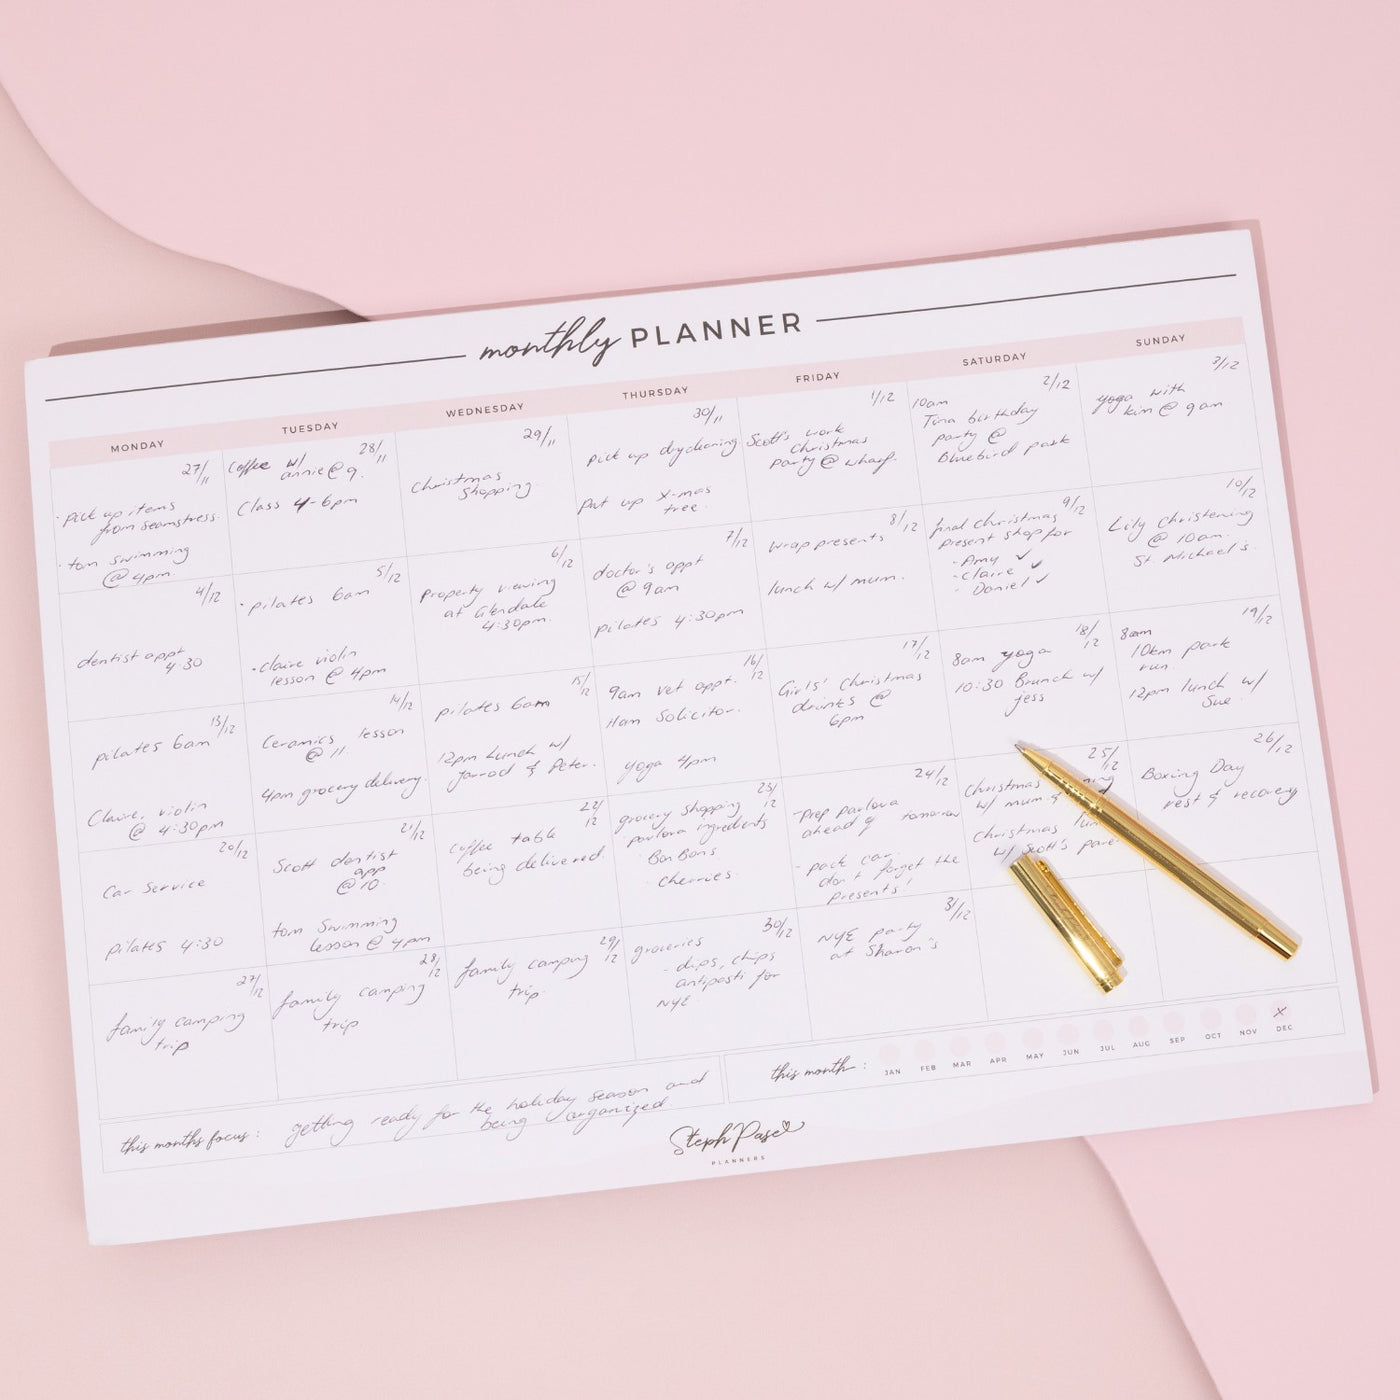 monthly PLANNER
MONDAY
TUESDAY
WEDNESDAY
THURSDAY
FRIDAY
SATURDAY
SUNDAY
27/11
· pick up items
from seamstress.
· tom swimming
@ 4pm
28/11
coffee w/
annie @ 9.
Class 4-6pm
29/11
Christmas
shopping.
30/11
pick up drycleaning
put up x-mas
tree.
1/12
Scott's work
Christmas
party @ wharf.
2/12
10am
Tina birthday
party @
Bluebird park
3/12
yoga with
kim @ 9am
4/12
dentist appt
4:30
5/12
· pilates 6am
· claire violin
lesson @ 4pm
6/12
property viewing
at Glendale
4:30pm.
7/12
doctor's appt
@ 9am
pilates 4:30pm
8/12
wrap presents
lunch w/ mum.
9/12
final christmas
present shop for
- Amy ✓
- Claire ✓
- Daniel ✓
10/12
Lily Christening
@ 10am.
St. Michael's.
13/12
pilates 6am
Claire, violin
@ 4:30pm
14/12
Ceramics lesson
@ 11.
4pm grocery delivery.
15/12
pilates 6am
12pm Lunch w/
Jarrod & Peter.
16/12
9am vet appt.
11am Solicitor.
yoga 4pm
17/12
Girls' Christmas
drinks @
6pm
18/12
8am yoga
10:30 Brunch w/
jess
19/12
8am
10km park
run.
12pm lunch w/
Sue.
20/12
Car service
pilates 4:30
21/12
Scott dentist
app
@ 10.
tom Swimming
lesson @ 4pm
22/12
coffee table
being delivered.
23/12
grocery shopping
· pavlova ingredients
· BonBons
· Cherries.
24/12
- prep pavlova
ahead of tomorrow
- pack car
don't forget the
presents!
25/12
Christmas
w/ mum &
Christmas
w/ Scott's
26/12
Boxing Day
rest & recovery
27/12
family camping
trip
28/12
family camping
trip
29/12
family camping
trip.
30/12
groceries
- dips, chips
antipasti for
NYE
31/12
NYE party
at Sharon's
this months focus:
getting ready for the holiday season and
being organized
this month:
x
JAN FEB MAR APR MAY JUN JUL AUG SEP OCT NOV DEC
Steph Pase
PLANNERS